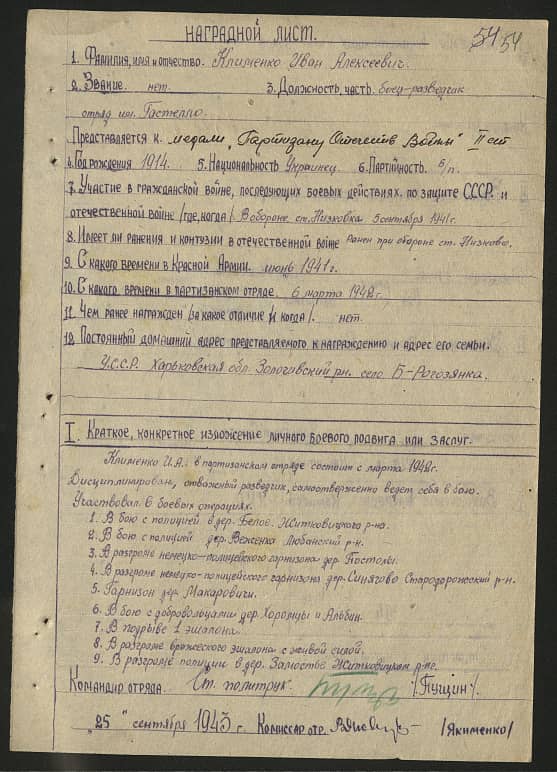 54 54
НАГРАДНОЙ ЛИСТ.
1. Фамилия, имя и отчество. Клименко Иван Алексеевич.
2. Звание. нет. 3. Должность, часть. боец-разведчик
отряд им. Гастелло.
Представляется к медали „Партизану Отечеств. Войны" II ст
4. Год рождения 1914. 5. Национальность Украинец 6. Партийность. б/п.
7. Участие в гражданской войне, последующих боевых действиях по защите СССР. и
отечественной войне /где, когда/. В обороне ст. Низковка 5 сентября 1941 г.
8. Имеет ли ранения и контузии в отечественной войне Ранен при обороне ст. Низковк.
9. С какого времени в Красной Армии. июнь 1941 г.
10. С какого времени в партизанском отряде. 6 марта 1942 г.
11. Чем ранее награжден /за какое отличие и когда/. нет.
12. Постоянный домашний адрес представляемого к награждению и адрес его семьи.
У.С.С.Р. Харьковская обл. Золочивский рн. село Б-Рогозянка.
I. Краткое, конкретное изложение личного боевого подвига или заслуг.
Клименко И.А. в партизанском отряде состоит с марта 1942 г.
Дисциплинирован, отважный разведчик, самоотверженно ведет себя в бою.
Участвовал в боевых операциях.
1. В бою с полицией в дер. Белое. Житковицкого р-на.
2. В бою с полицией дер. Веженка Любанский р-н.
3. В разгроме немецко-полицейского гарнизона дер. Постолы.
4. В разгроме немецко-полицейского гарнизона дер. Синягово Стародорожский р-н.
5. Гарнизон дер. Макаровичи.
6. В бою с добровольцами дер. Хоромцы и Альбин.
7. В подрыве 1 эшалона.
8. В разгроме вражеского эшалона с живой силой.
9. В разгроме полиции в дер. Замостье Житковицком р-не.
Командир отряда. Ст. политрук. /Пущин/.
„25" сентября 1943 г. Комиссар отр. /Якименко/